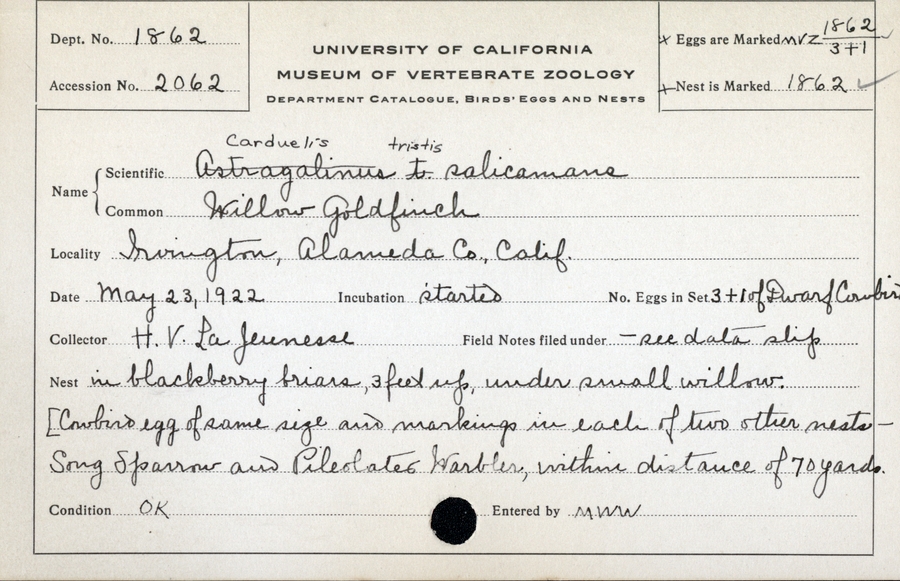 Dept. No. 1862
UNIVERSITY OF CALIFORNIA
MUSEUM OF VERTEBRATE ZOOLOGY
DEPARTMENT CATALOGUE, BIRDS' EGGS AND NESTS
x Eggs are Marked MVZ 1862
3+1
Accession No. 2062
+ Nest is Marked 1862 ✓
Carduelis tristis
Name { Scientific Astragalinus t. salicamans
Common Willow Goldfinch
Locality Irvington, Alameda Co., Calif.
Date May 23, 1922 Incubation started No. Eggs in Set 3+1 of Dwarf Cowbird
Collector H. V. La Jeunesse Field Notes filed under – see data slip
Nest in blackberry briars, 3 feet up, under small willow.
[Cowbird egg of same size and markings in each of two other nests –
Song Sparrow and Pileolated Warbler, within distance of 70 yards.
Condition OK Entered by MWW